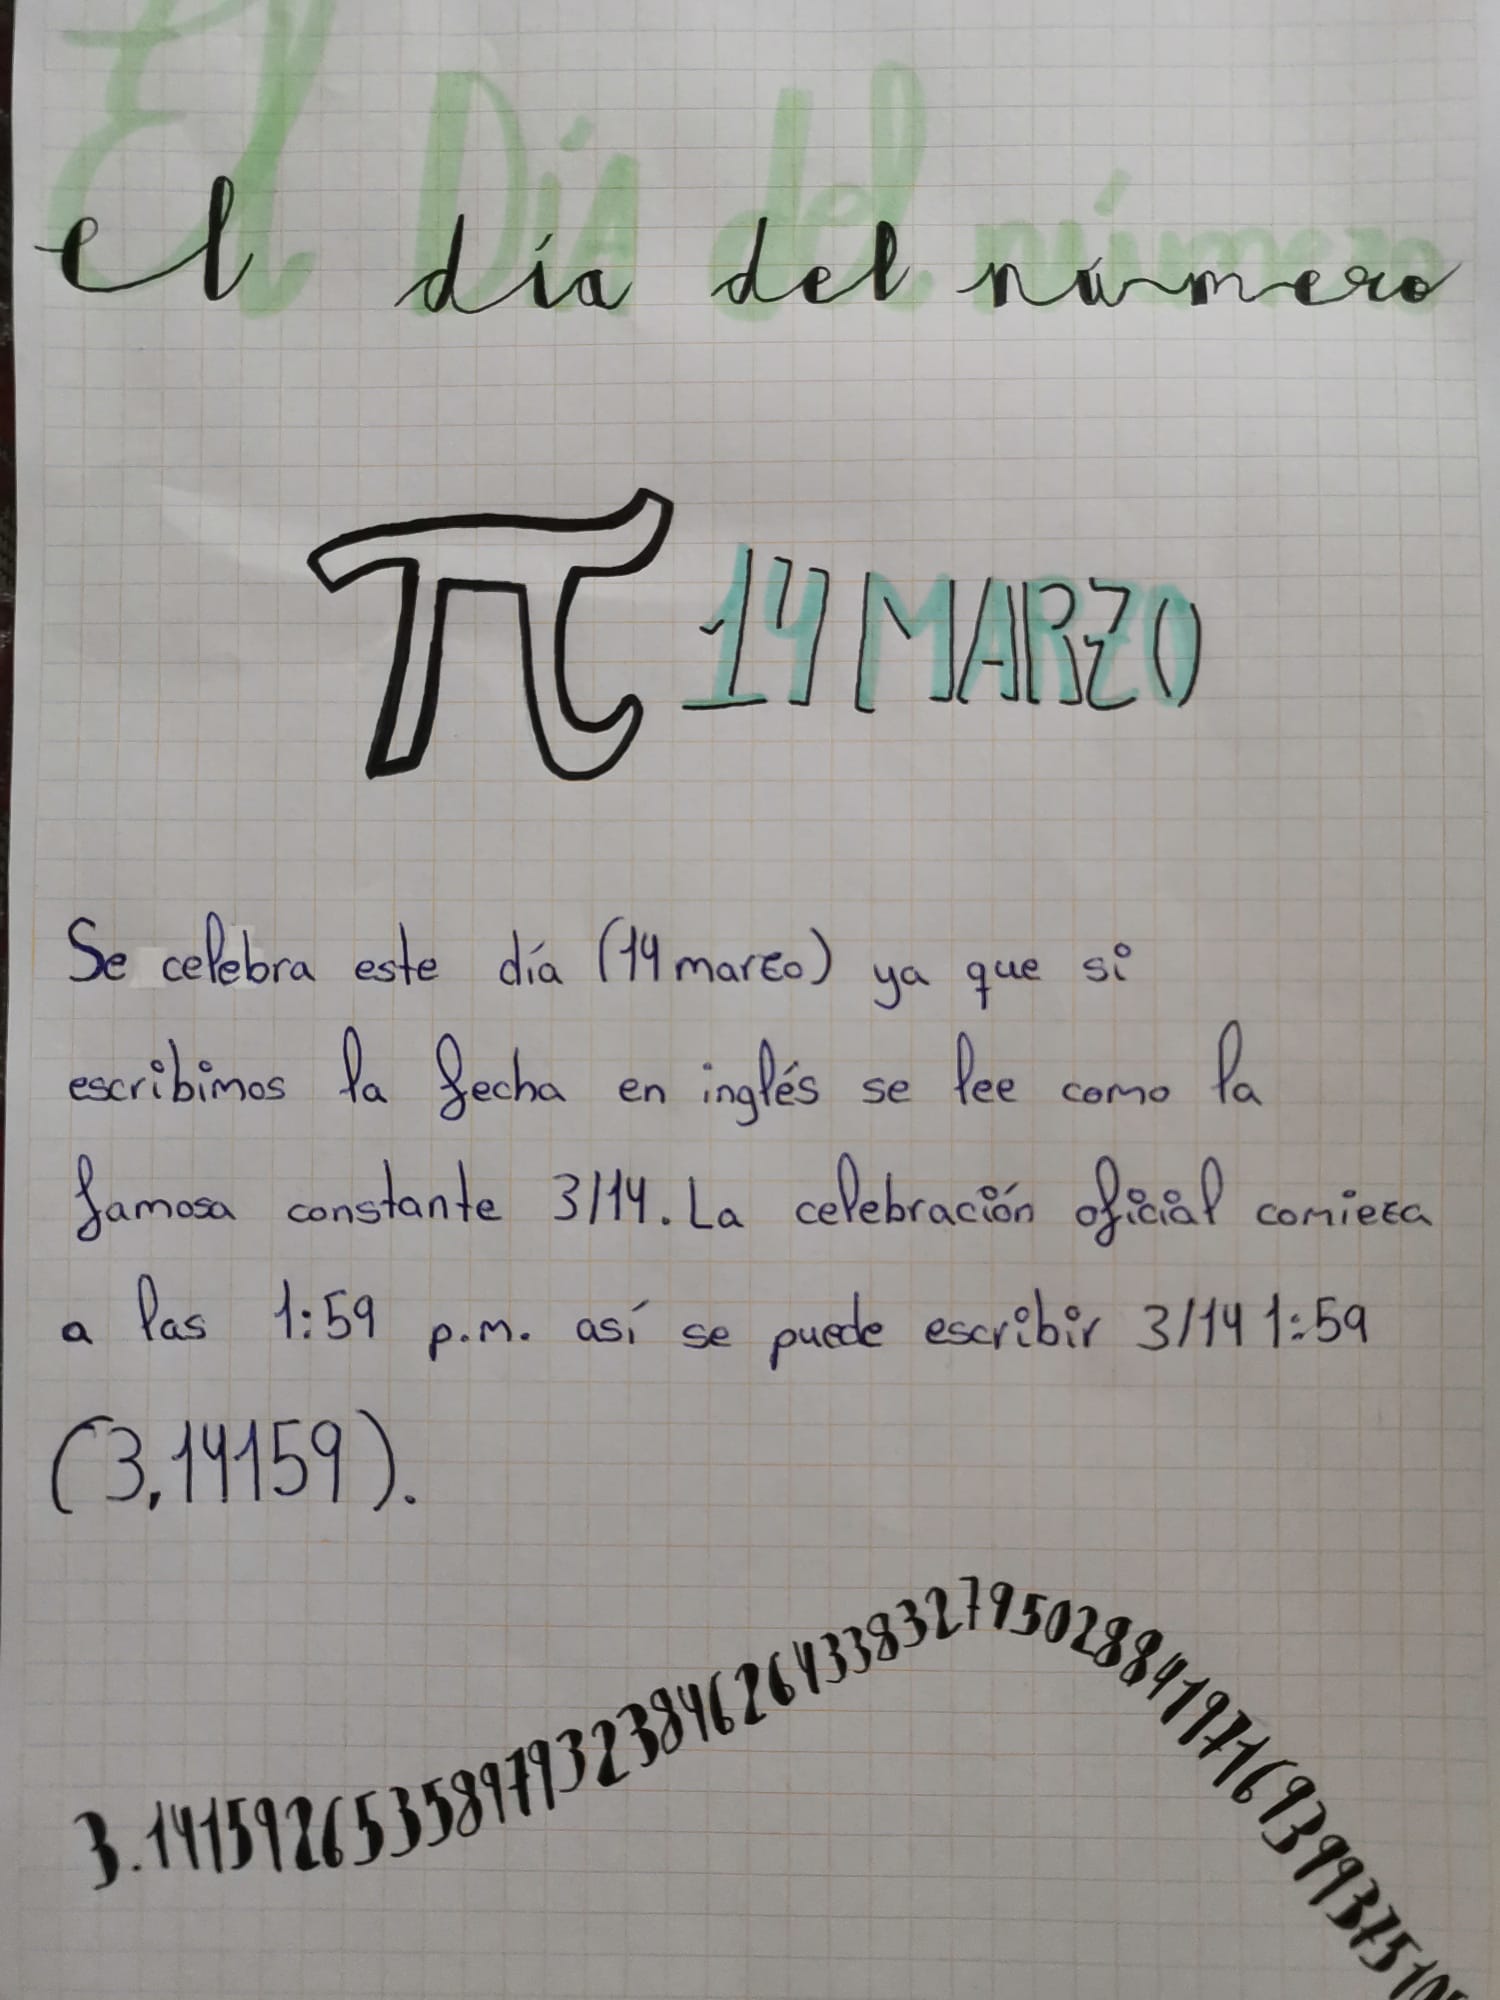 El Día del número
el día del número
π 14 MARZO
Se celebra este día (14 marzo) ya que si
escribimos la fecha en inglés se lee como la
famosa constante 3/14. La celebración oficial comieza
a las 1:59 p.m. así se puede escribir 3/14 1:59
(3,14159).
3.14159265358979323846264338327950288419716939937510